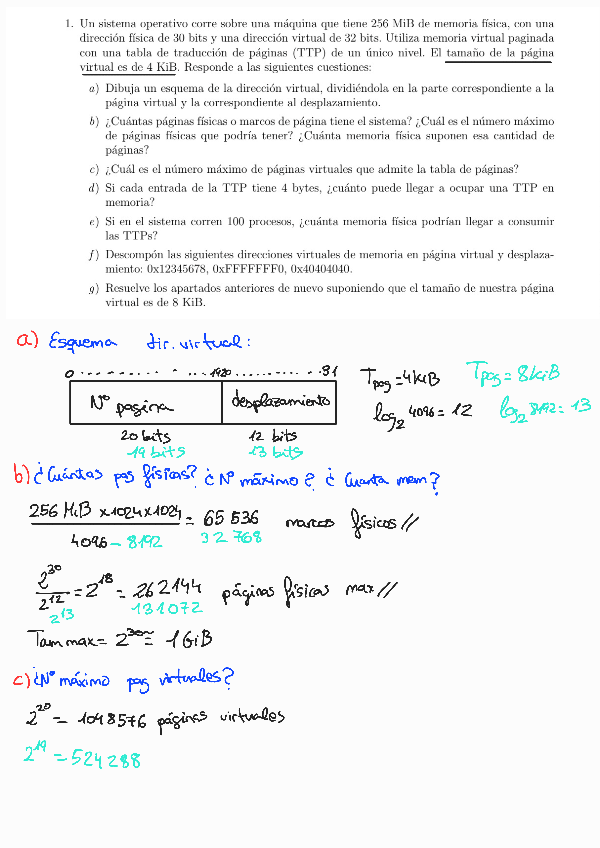 1. Un sistema operativo corre sobre una máquina que tiene 256 MiB de memoria física, con una
dirección física de 30 bits y una dirección virtual de 32 bits. Utiliza memoria virtual paginada
con una tabla de traducción de páginas (TTP) de un único nivel. El tamaño de la página
virtual es de 4 KiB. Responde a las siguientes cuestiones:
a) Dibuja un esquema de la dirección virtual, dividiéndola en la parte correspondiente a la
página virtual y la correspondiente al desplazamiento.
b) ¿Cuántas páginas físicas o marcos de página tiene el sistema? ¿Cuál es el número máximo
de páginas físicas que podría tener? ¿Cuánta memoria física suponen esa cantidad de
páginas?
c) ¿Cuál es el número máximo de páginas virtuales que admite la tabla de páginas?
d) Si cada entrada de la TTP tiene 4 bytes, ¿cuánto puede llegar a ocupar una TTP en
memoria?
e) Si en el sistema corren 100 procesos, ¿cuánta memoria física podrían llegar a consumir
las TTPs?
f) Descompón las siguientes direcciones virtuales de memoria en página virtual y desplaza-
miento: 0x12345678, 0xFFFFFFF0, 0x40404040.
g) Resuelve los apartados anteriores de nuevo suponiendo que el tamaño de nuestra página
virtual es de 8 KiB.
a) Esquema dir. virtual:
0 1920 31
Nº pagina desplazamiento
20 bits 12 bits
19 bits 13 bits
Tpag = 4KiB Tpag = 8KiB
log₂ 4096 = 12 log₂ 8192 = 13
b) ¿Cuántas pag físicas? ¿Nº máximo? ¿Cuanta mem?
256 MiB x1024x1024 = 65 536 marcos físicos //
4096 - 8192 32 768
2³⁰ / 2¹² = 2¹⁸ = 262144 páginas físicas max //
2¹³ 131072
Tam max = 2³⁰ ≈ 1 GiB
c) ¿Nº máximo pag virtuales?
2²⁰ = 1048576 páginas virtuales
2¹⁹ = 524288